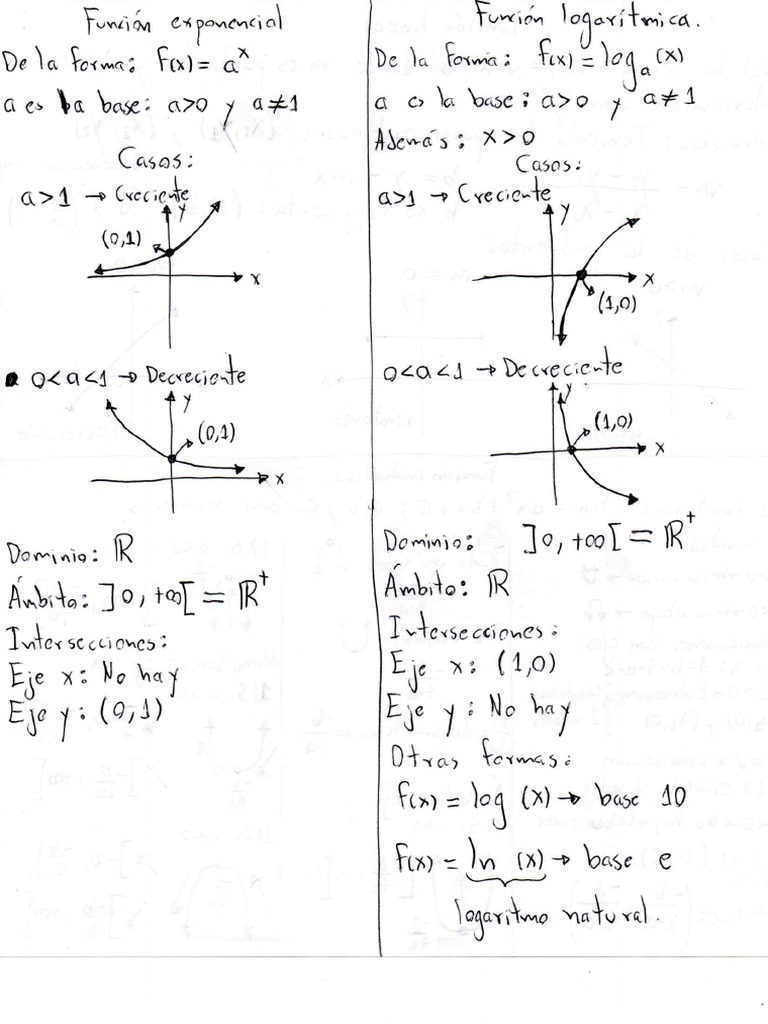 Función exponencial
De la forma: f(x) = a^x
a es la base: a>0 y a≠1
Casos:
a>1 → Creciente
y
(0,1)
x
0<a<1 → Decreciente
y
(0,1)
x
Dominio: ℝ
Ámbito: ]0,+∞[ = ℝ⁺
Intersecciones:
Eje x: No hay
Eje y: (0,1)
Función logarítmica.
De la forma: f(x) = log_a (x)
a es la base: a>0 y a≠1
Además: x>0
Casos:
a>1 → Creciente
y
x
(1,0)
0<a<1 → Decreciente
y
(1,0)
x
Dominio: ]0,+∞[ = ℝ⁺
Ámbito: ℝ
Intersecciones:
Eje x: (1,0)
Eje y: No hay
Otras formas:
f(x) = log (x) → base 10
f(x) = ln (x) → base e
logaritmo natural.